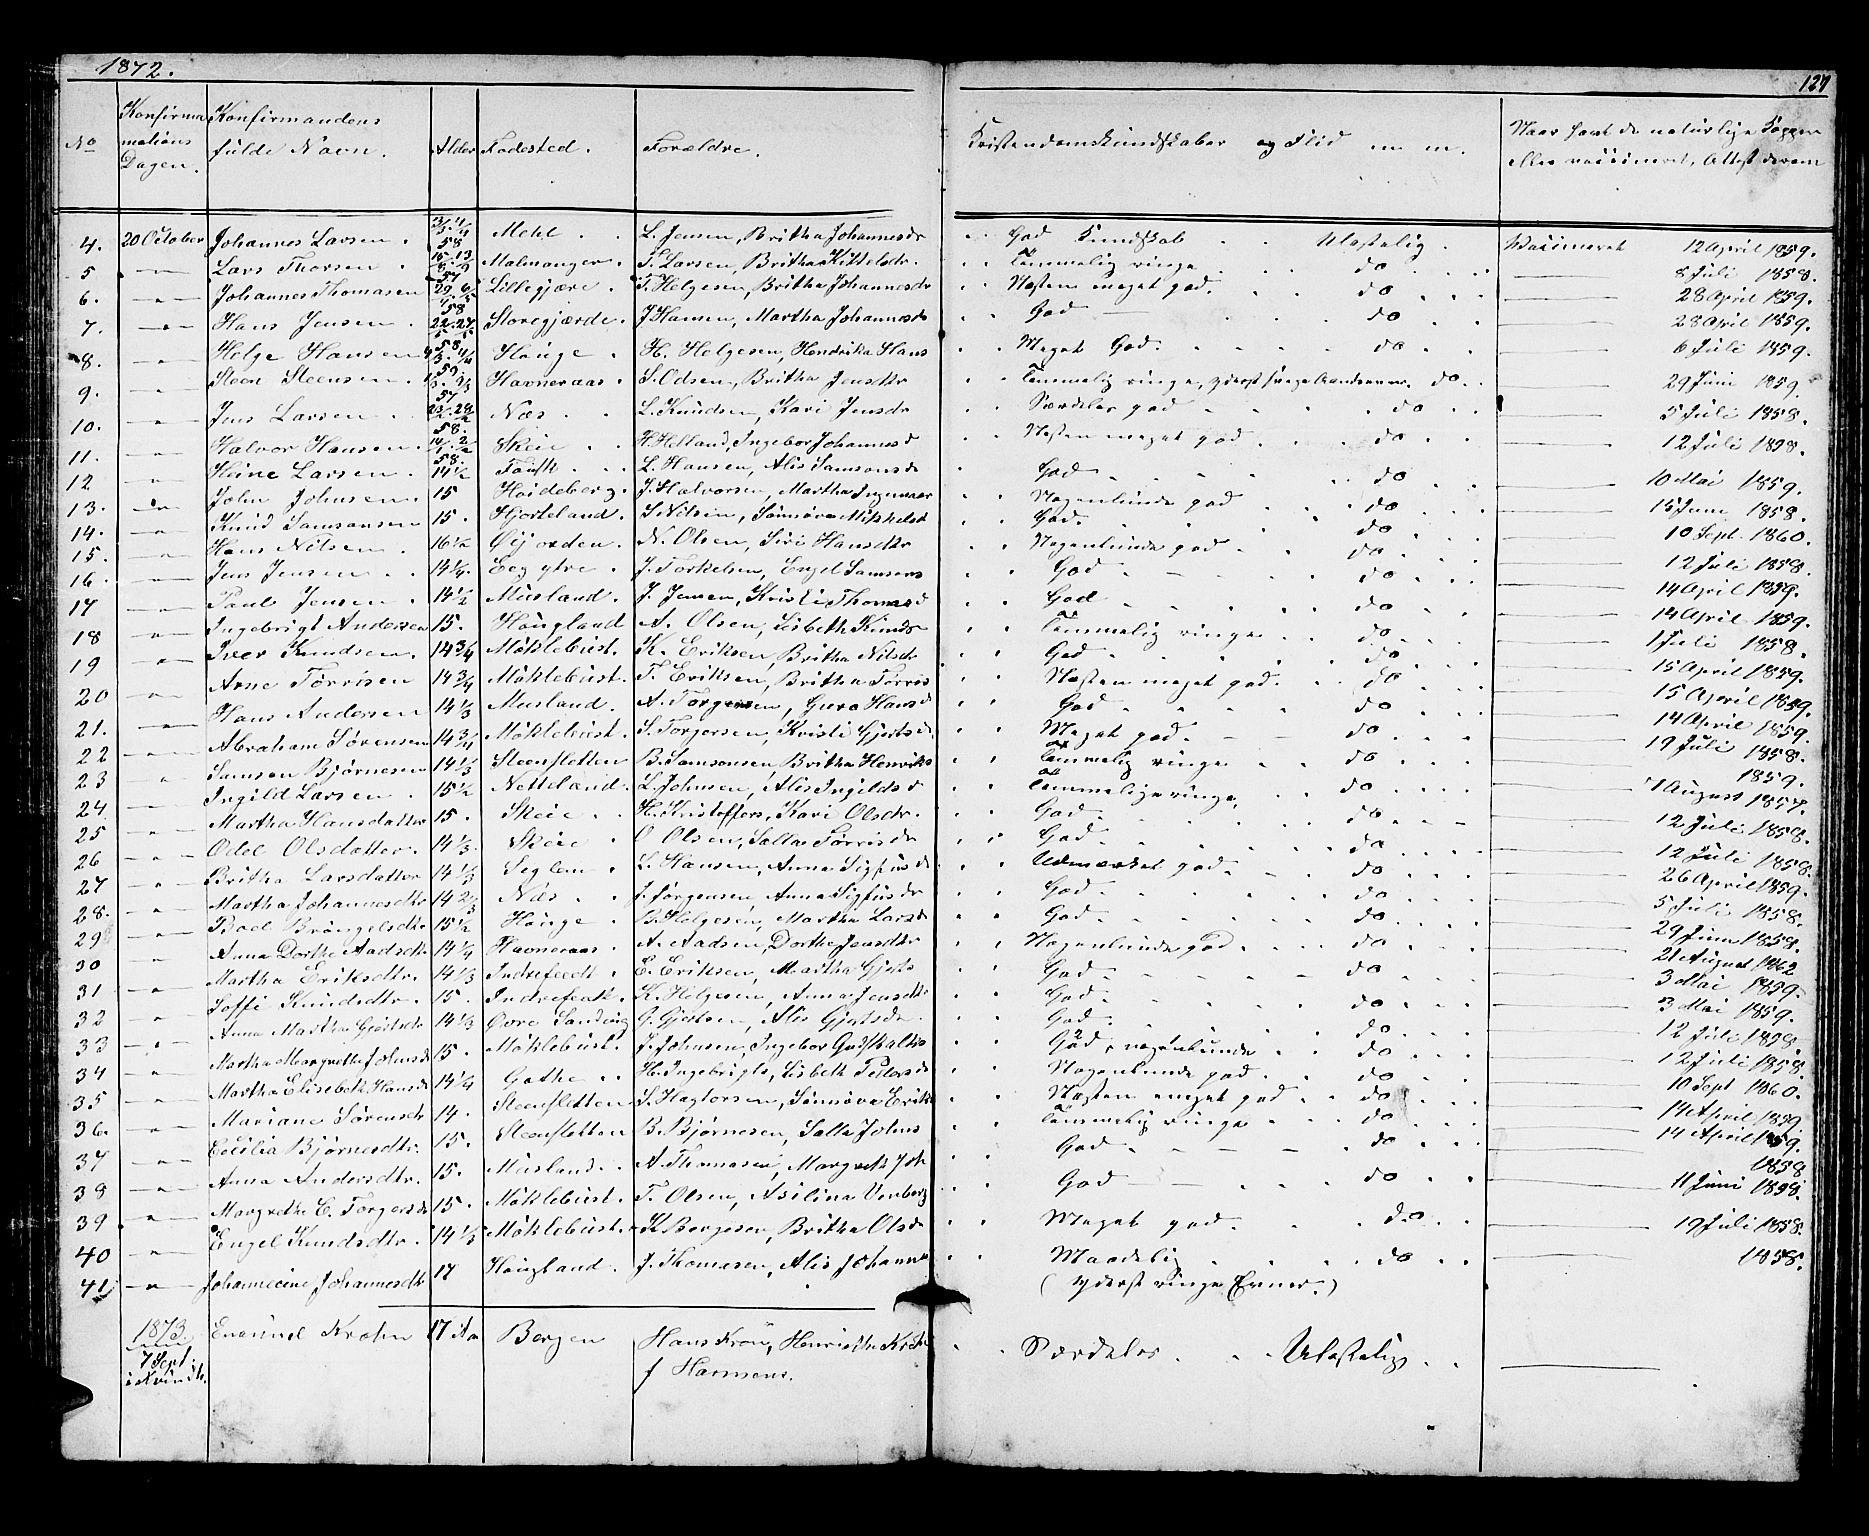 1872.
127
No
Konfirmationsdagen.
Konfirmandens fulde Navn.
Alder
Fødested.
Forældre.
Kristendomskundskaber og Flid m. m.
Naar havt de naturlige Kopper eller vaccineret, Attest derom
4. 20 October Johannes Larsen. Mehl L. Jensen, Britha Johannesdr God Kundskab Ulastelig. Vaccineret 12 April 1859.
5 -"- Lars Thorsen Malmanger. T. Larsen, Britha Kittelsdr. Temmelig ringe do 8 Juli 1858.
6. -"- Johannes Thomasen Lillegjære. T. Helgesen, Britha Johannesdr Næsten meget god. do 28 April 1859.
7. -"- Hans Jensen. Storegjærde. J Hansen, Martha Johannesdr God do 28 April 1859.
8. -"- Helge Hansen Hauge H. Helgesen, Hendrika Hans Meget God. do 6 Juli 1859.
9. -"- Steen Steensen. Havneraas. S. Odsen, Britha Jensdtr Temmelig ringe, yderst svage Aandsevner. do. 29 Juni 1859.
10. -"- Jens Larsen Næs L. Knudsen, Kari Jensdr Særdeles god do 5 Juli 1858.
11. -"- Halvor Hansen. Skeie H. Helland, Ingebor Johannesd Næsten meget god do 12 Juli 1858.
12 " Heine Larsen 14 1/2 L. Hansen, Alis Samsonsdr God do 10 Mai 1859.
13. -"- John Johnsen. 15 Heideberg. J. Halvorsen, Martha Ingemaer Nogenlunde god do 15 Juni 1858.
14. " Knud Samsonsen 15. Hjorteland. S. Nilsen, Sönnöva Mikkelsd God. do 10 Sept. 1860.
15. " Hans Nilsen 16 1/2 N. Olsen, Siri Hansdtr Nogenlunde god do 12 Juli 1858.
16. -"- Jens Jensen 14 1/4. J. Torkelsen, Engel Samsons God. do 14 April 1859.
17 -"- Paul Jensen 14 1/2 Musland. J. Jensen, Kristi Thomasd God do 14 April 1859.
18 -"- Ingebrigt Andersen 15. Hougland A. Olsen, Lisbeth Knuds Temmelig ringe do 1 Juli 1858.
19 -"- Iver Knudsen. 14 3/4 Möklebust. K. Eriksen, Britha Nilsdr God do 15 April 1859.
20 -"- Arne Törrisen 14 3/4 Möklebust. T. Eriksen, Britha Törris Næsten meget god. do 15 April 1859.
21. -"- Hans Andersen 14 1/3 Musland. A. Torgersen, Guro Hansd God do 14 April 1859.
22 -"- Abraham Sörensen 14 3/4 Möklebust. S. Torgersen, Kristi Gjertsd. Meget god. do 19 Juli 1858.
23 " Samson Björnesen 14 1/3 Steensletten B. Samsonsen Britha Henriks Temmelig ringe do 1859.
24 -"- Ingild Larsen 15 1/2 Netteland. L. Johnsen, Alis Ingildsd Temmelig ringe, do 1 August 1857.
25 -"- Martha Hansdatter 15. Skeie H. Kristoffers, Kari Olsdr. God. do 12 Juli 1858.
26 -"- Odel Olsdatter. 14 1/3. Skeie O Olsen, Salla Torrisdr God do 12 Juli 1858.
27 -"- Britha Larsdatter 14 1/3 Seglem L. Hansen, Anna Sigfusdr. Udmærket god do 26 April 1859.
28. -"- Martha Johannesdtr 14 2/3 Næs J. Jörgensen Anna Sigfusdr God do 5 Juli 1858.
29 -"- Boel Brüngelsdtr. 15 1/2 Hauge B. Helgesen, Martha Larsdr God do 29 Juni 1858.
30 -"- Anna Dorthe Aadsdtr. 14 1/4 Havneraas. A. Aadsen, Dorthe Jensdtr Nogenlunde god do 21 August 1862
31 -"- Martha Eriksdtr. 14 1/3 E. Eriksen, Martha Gjerts God do 3 Mai 1859.
32 -"- Soffi Knudsdtr. 15. K. Helgesen, Anna Jensdtr God. do 3 Mai 1859.
33 -"- Anna Martha Gjertsdr 14 1/3 G. Gjertsen, Alis Gjertsdr. God. do 12 Juli 1858.
34 -"- Martha Margrethe Johnsdr 15. Möklebust. J. Johnsen, Ingebor God, nogenlunde do 12 Juli 1858.
35 -"- Martha Elisebeth Hansdr 14 1/4 Gathe H. Ingebrigts, Lisbeth Pedersdr Nogenlunde god do 10 Sept 1860.
36. -"- Mariane Sörensdr 14. Steensletten Næsten meget god do 14 April 1859.
37 -"- Cecilia Björnesdtr. 15. Steensletten B. Björnesen, Salla Johns Temmelig ringe do 14 April 1859.
38 -"- Anna Andersdtr. 15. Musland. A. Thomasen, Margreth Joh God do 1858
39 -"- Margrethe E. Torgersdr 15. Möklebust. T. Olsen, Asilina Venberg God do 11 Juni 1858.
40 -"- Engel Knudsdtr. 14 1/3 Möklebust. K. Borgesen, Britha Olsdr Meget god do 19 Juli 1858.
41 -"- Johannecine Johannesdtr 17 Hougland. J. Thomasen, Alis Johanne Maadelig do 1858.
(yderst ringe Evner.)
1873. 7 Sept. Krohn 17 Aar Bergen Hans Kron, Henriette Særdeles Ulastelig
f Harmens.